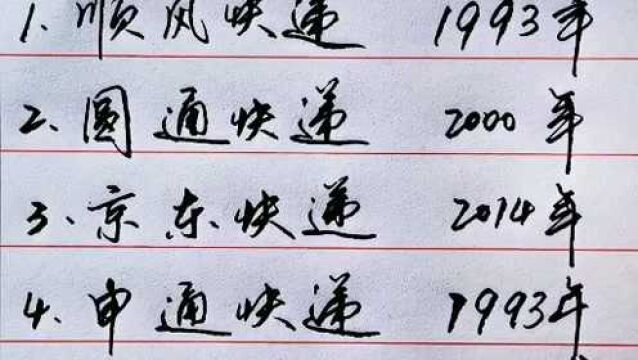 1、顺风快递 1993年
2、圆通快递 2000年
3、京东快递 2014年
4、申通快递 1993年